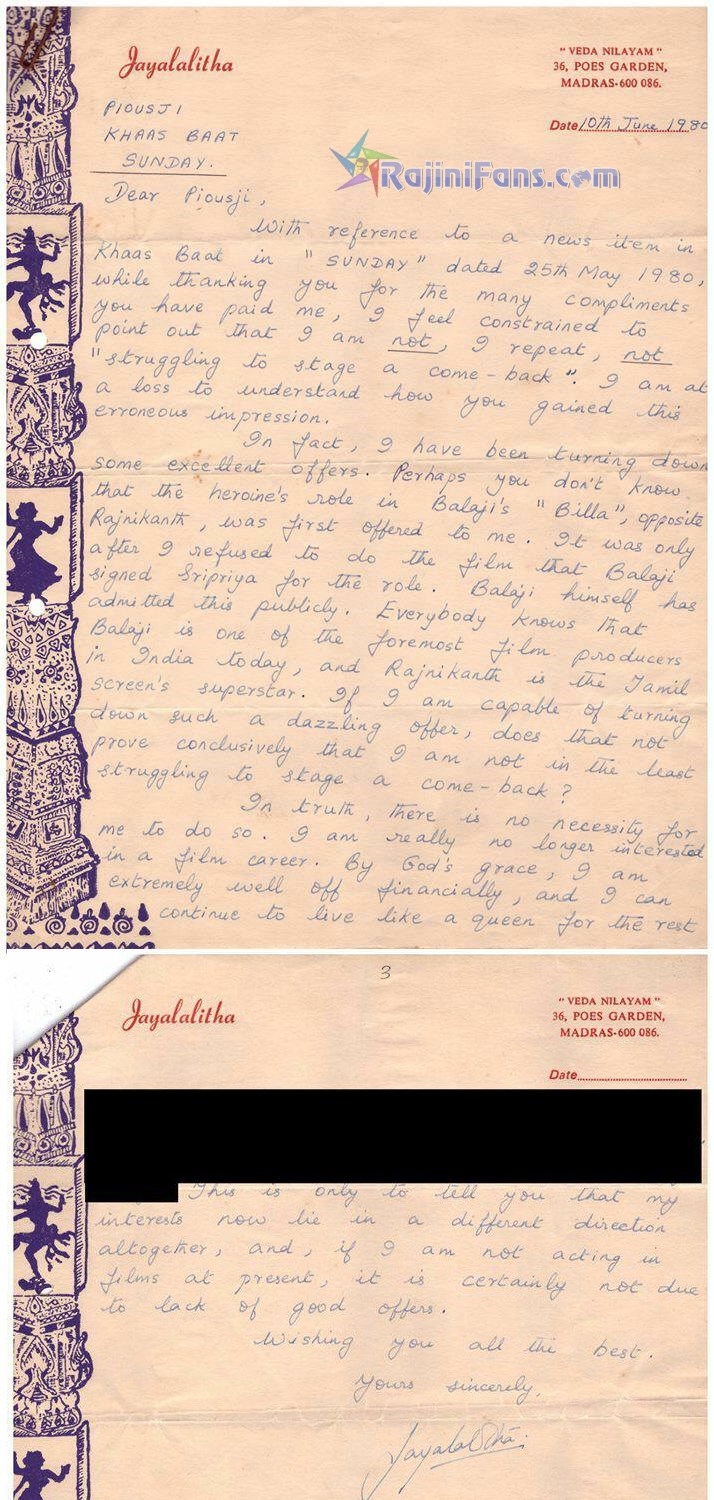 Jayalalitha
" VEDA NILAYAM "
36, POES GARDEN,
MADRAS-600 086.
Date 10th June 1980
PIOUSJI
KHAAS BAAT
SUNDAY.
RajiniFans.com
Dear Piousji,
With reference to a news item in
Khaas Baat in "SUNDAY" dated 25th May 1980,
while thanking you for the many compliments
you have paid me, I feel constrained to
point out that I am not, I repeat, not
"struggling to stage a come-back". I am at
a loss to understand how you gained this
erroneous impression.
In fact, I have been turning down
some excellent offers. Perhaps you don't know
that the heroine's role in Balaji's "Billa", opposite
Rajnikanth, was first offered to me. It was only
after I refused to do the film that Balaji
signed Sripriya for the role. Balaji himself has
admitted this publicly. Everybody knows that
Balaji is one of the foremost film producers
in India today, and Rajnikanth is the Tamil
screen's superstar. If I am capable of turning
down such a dazzling offer, does that not
prove conclusively that I am not in the least
struggling to stage a come-back?
In truth, there is no necessity for
me to do so. I am really no longer interested
in a film career. By God's grace, I am
extremely well off financially, and I can
continue to live like a queen for the rest
3
Jayalalitha
" VEDA NILAYAM "
36, POES GARDEN,
MADRAS-600 086.
Date
This is only to tell you that my
interests now lie in a different direction
altogether, and, if I am not acting in
films at present, it is certainly not due
to lack of good offers.
Wishing you all the best.
Yours sincerely,
Jayalalitha.